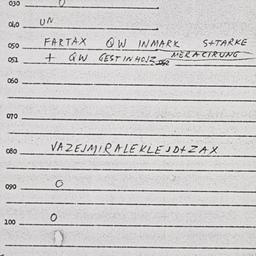 030 0
040 UN
050 FARTAX QW INMARK S+TARKE
051 + QW GEST IN HOJZ MERACIRUNG
060
070
080 VAZEJMIRALEKLEJD+ZAX
090 0
100 0
0